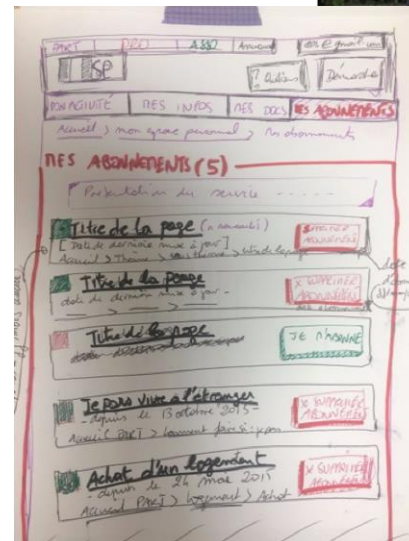 PART PRO ASSO Annuaire @gmail.com
SP ? Questions Démarches
MON ACTIVITÉ MES INFOS MES DOCS MES ABONNEMENTS
Accueil > mon espace personnel > mes abonnements
MES ABONNEMENTS (5)
Présentation du service - - - - -
Titre de la page (n nouveautés)
[Date de dernière mise à jour]
Accueil > Thème > sous thème > titre de la page
SUPPRIMER ABONNEMENT
Titre de la page
date de dernière mise à jour -
X SUPPRIMER ABONNEMENT
Titre de la page
JE M'ABONNE
Je pars vivre à l'étranger
- depuis le 13 octobre 2015 -
Accueil PART > Comment faire si > je pars
X SUPPRIMER ABONNEMENT
Achat d'un logement
- depuis le 24 mai 2015
Accueil PART > Logement > Achat
X SUPPRIMER ABONNEMENT